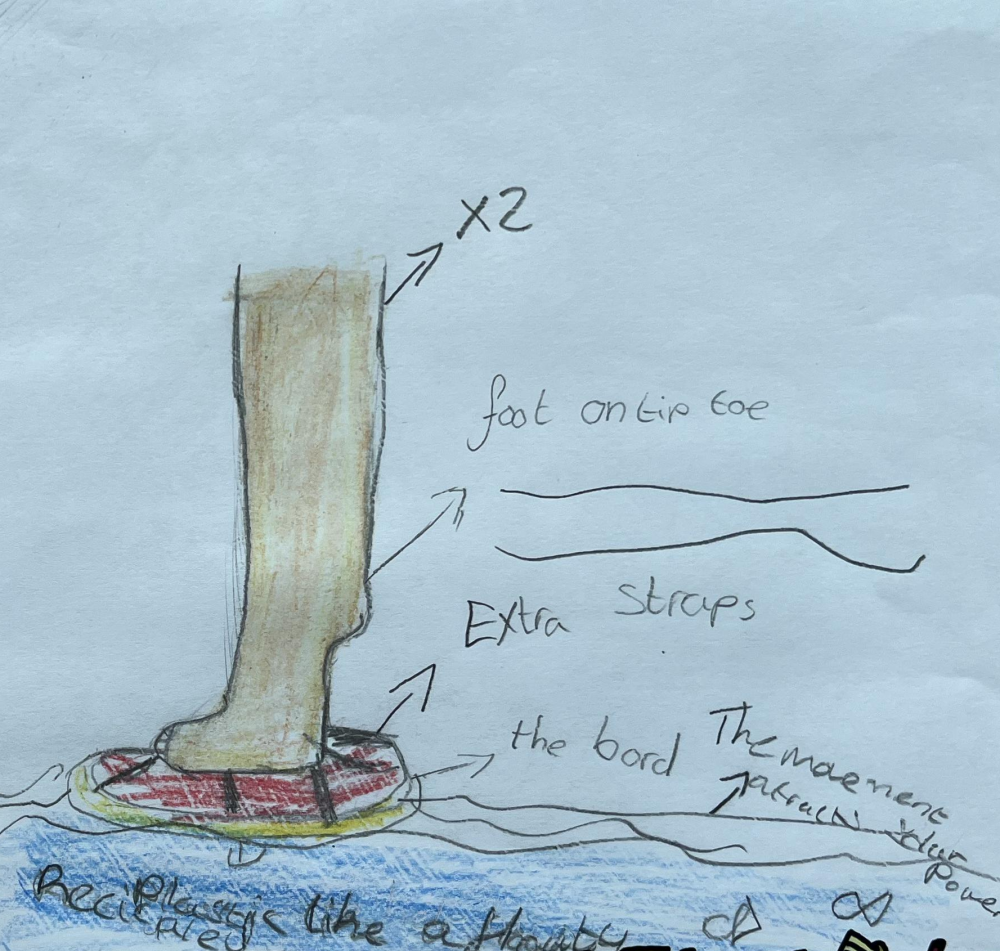 X2
foot on tip toe
Extra straps
the bord
The maement
atrack
Power
Plastic like a floaty